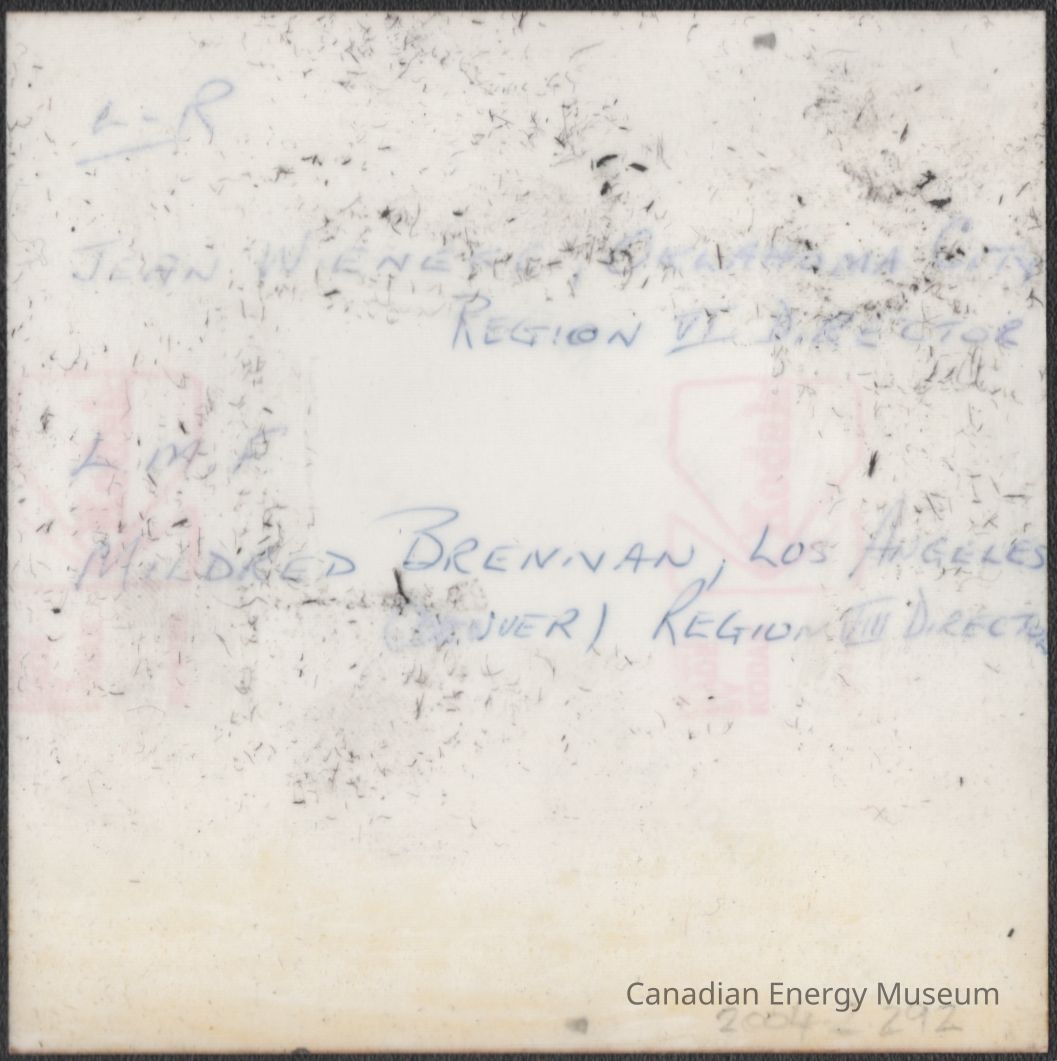 L-R
JEAN WENEKE, OKLAHOMA CITY
REGION VI DIRECTOR
L M F
MILDRED BRENNAN, LOS ANGELES
(DENVER) REGION VIII DIRECTOR
Canadian Energy Museum
2004-292